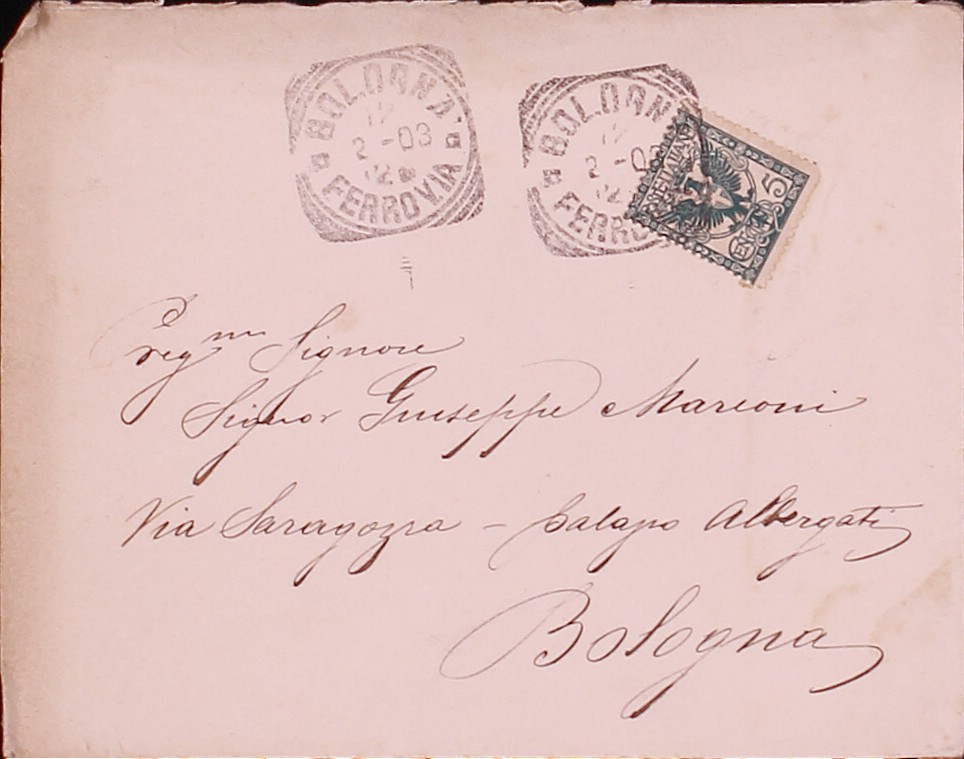 BOLOGNA
12
2 - 03
12
FERROVIA
BOLOGN
12
2 - 0
12
FERRO
POSTE ITALIANE
CENT. 5
Preg mo Signore
Signor Giuseppe Marconi
Via Saragozza - Palazzo Albergati
Bologna